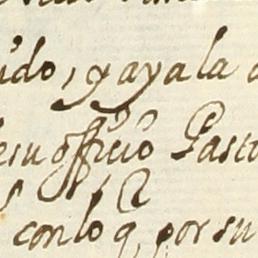 ido, y aya la
su officio Pasto
con lo q, por su